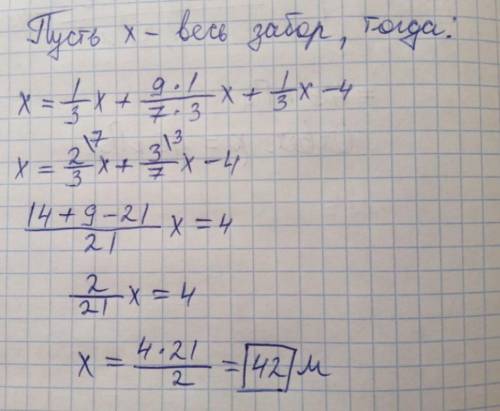 Пусть x - весь забор, тогда:
x = 1/3 x + 9·1/7·3 x + 1/3 x - 4
x = 2\7/3 x + 3\3/7 x - 4
14 + 9 - 21/21 x = 4
2/21 x = 4
x = 4·21/2 = 42 м